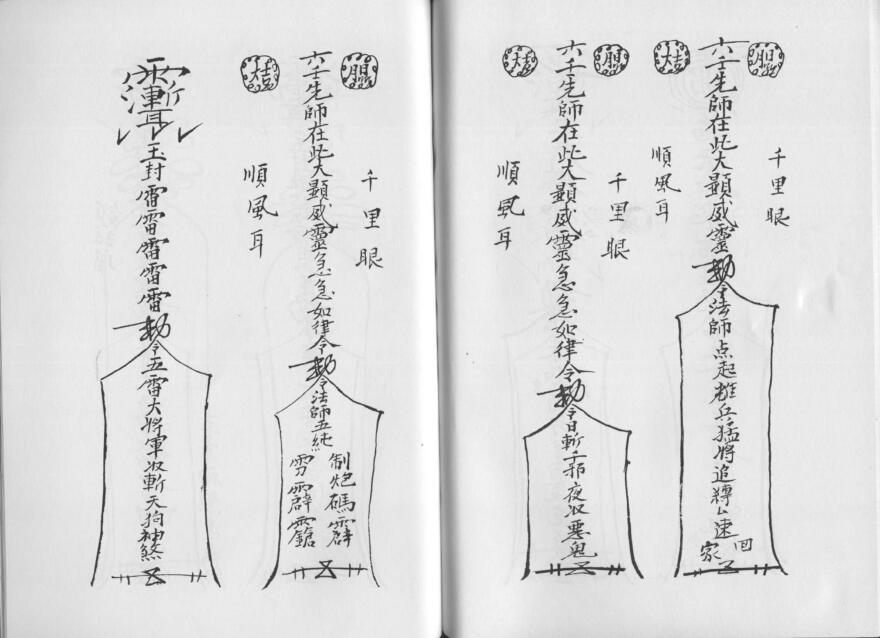 千里眼
六壬先師在此大顯威靈
勅令法師点起雄兵猛將追縛厶速
回
家
大吉
順風耳
千里眼
六壬先師在此大顯威靈急急如律令
勅令日斬千邪夜收悪鬼
大吉
順風耳
千里眼
六壬先師在此大顯威靈急急如律令
勅令法師五純
制炮碼霹
雳霹靈鎗
大吉
順風耳
玉封雷雷雷雷雷
勅令五雷大將軍收斬天狗神煞